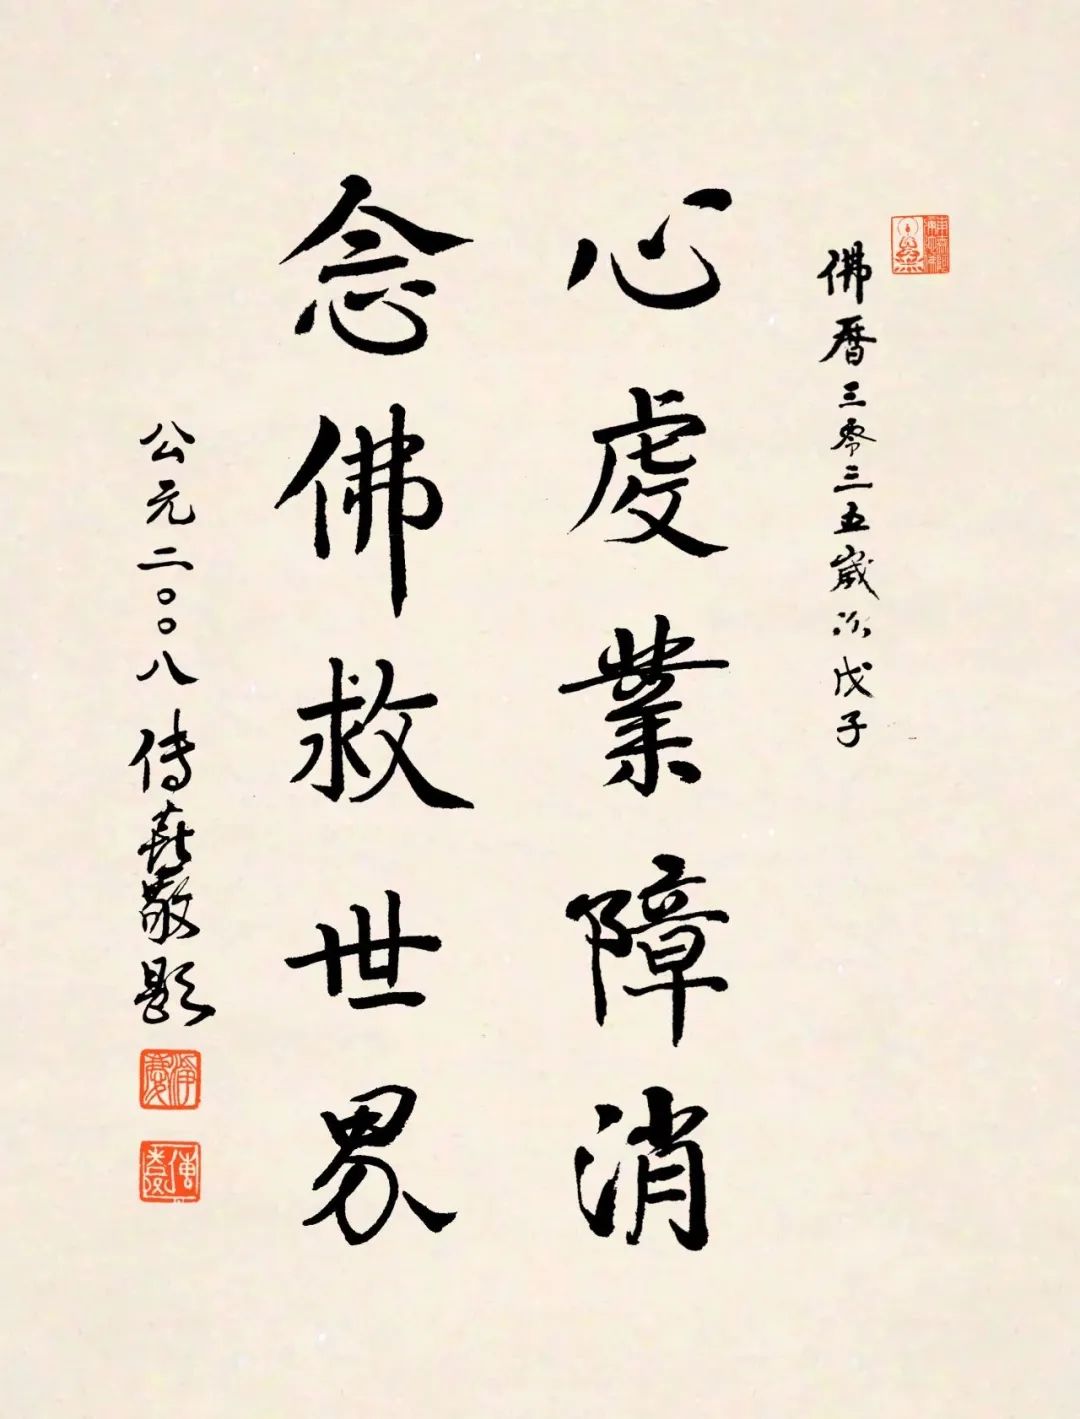 佛曆三零三五歲次戊子
心處業障消
念佛救世界
公元二〇〇八傳喜敬題
傳喜